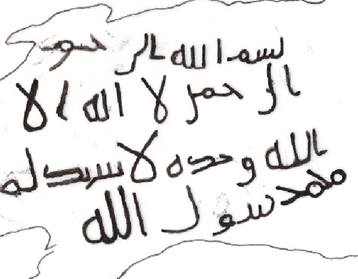 بسم الله الر
الرحمن لا اله الا
الله وحده لا شريك له
محمد رسول الله